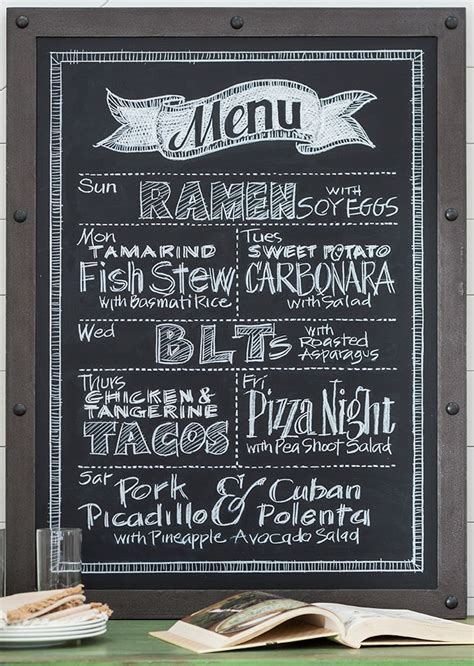 Menu
Sun RAMEN with
SOY EGGS
Mon
TAMARIND
Fish Stew
with Basmati Rice
Tues
SWEET POTATO
CARBONARA
with Salad
Wed BLTs with
Roasted
Asparagus
Thurs
CHICKEN &
TANGERINE
TACOS
Fri
Pizza Night
with Pea Shoot Salad
Sat Pork & Cuban
Picadillo Polenta
with Pineapple Avocado Salad